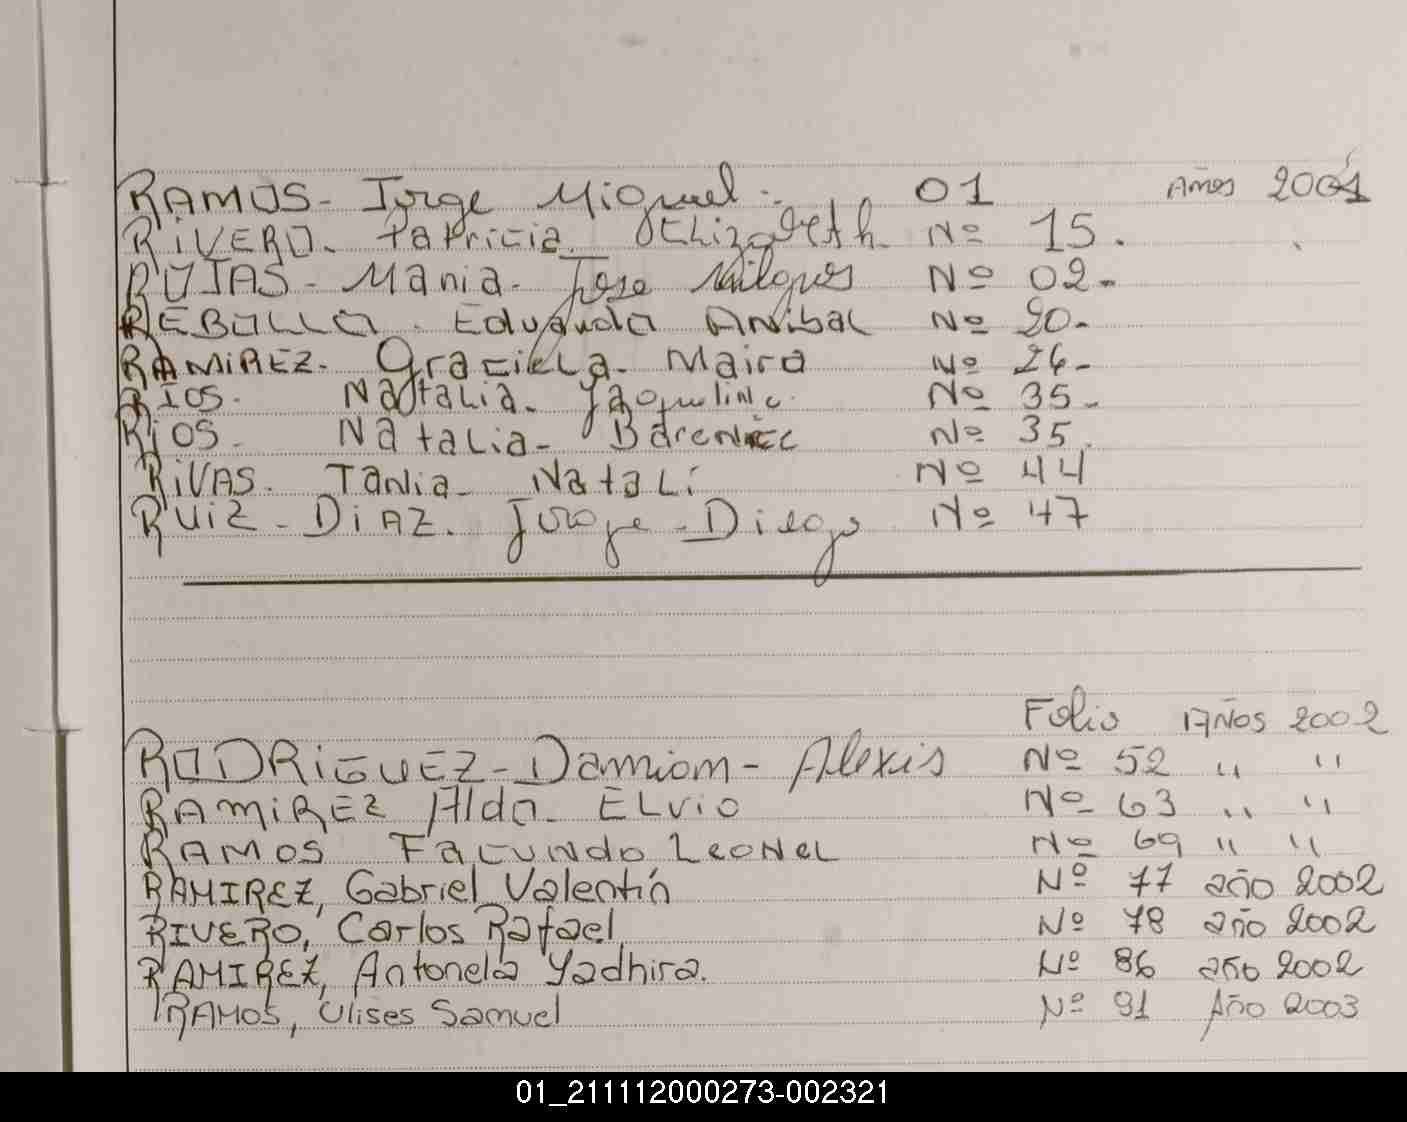 RAMOS- Jorge Miguel. 01 Años 2001
RIVERO. Patricia. Elizabeth. Nº 15.
ROJAS- Maria- Jose Milagros Nº 02-
REBOLLO. Eduardo Anibal Nº 20-
RAMIREZ. Graciela- Maira Nº 26-
RIOS. Natalia. Jaqueline. Nº 35-
RIOS- Natalia- Barenicc Nº 35.
RIVAS. Tania- Natali Nº 44
RUIZ- DIAZ. Jorge-Diego Nº 47
Folio Años 2002
RODRIGUEZ-Damiam- Alexis Nº 52 " "
RAMIREZ Aldo- ELvio Nº 63 " "
RAMOS Facundo Leonel Nº 69 " "
RAMIREZ, Gabriel Valentín Nº 77 año 2002
RIVERO, Carlos Rafael Nº 78 año 2002
RAMIREZ, Antonela Yadhira. Nº 86 año 2002
RAMOS, Ulises Samuel Nº 91 Año 2003
01_211112000273-002321